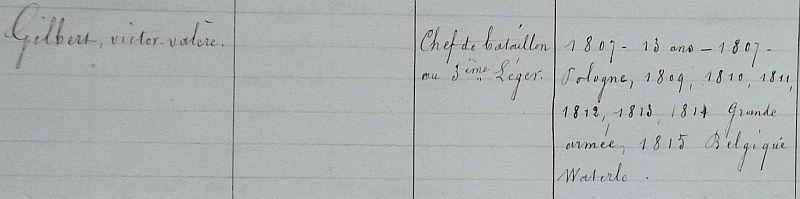 Gilbert, victor-valère.
Chef de bataillon
au 3ème Léger.
1807 - 13 ans - 1807 -
Pologne, 1809, 1810, 1811,
1812, 1813, 1814 Grande
armée, 1815 Belgique
Waterlo.